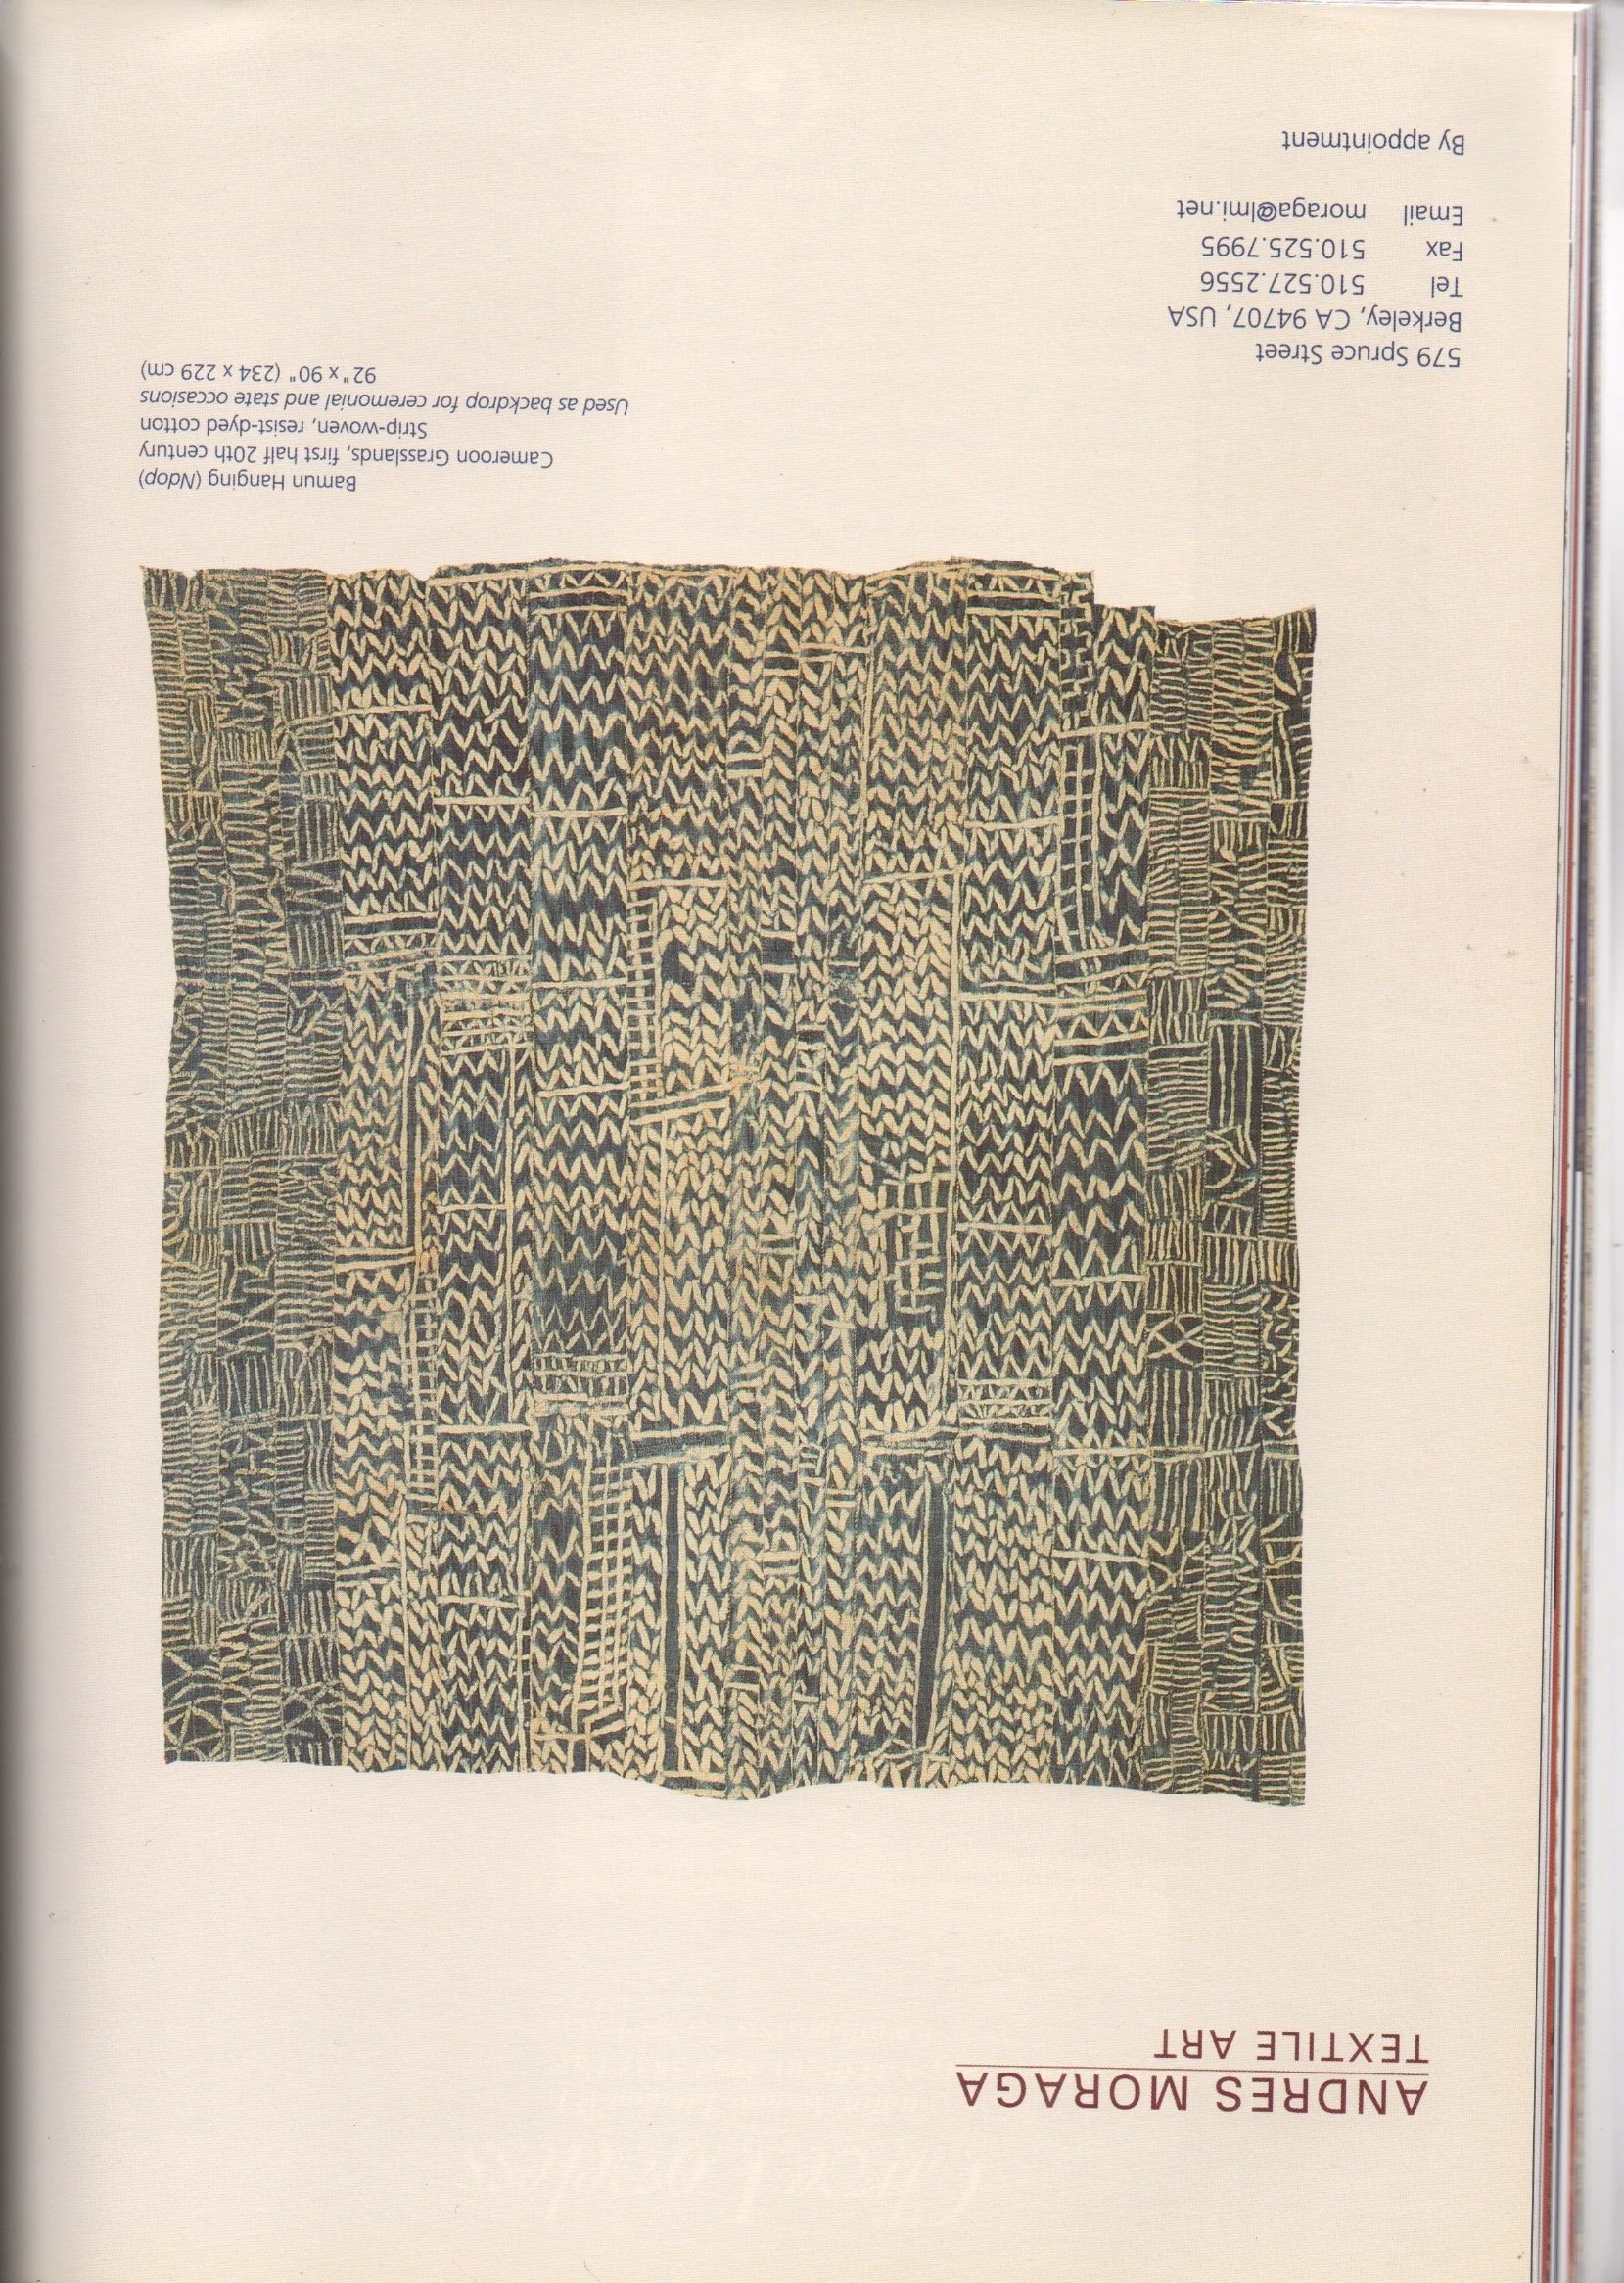 ANDRES MORAGA
TEXTILE ART
Bamun Hanging (Ndop)
Cameroon Grasslands, first half 20th century
Strip-woven, resist-dyed cotton
Used as backdrop for ceremonial and state occasions
92" x 90" (234 x 229 cm)
579 Spruce Street
Berkeley, CA 94707, USA
Tel 510.527.2556
Fax 510.525.7995
Email moraga@lmi.net
By appointment